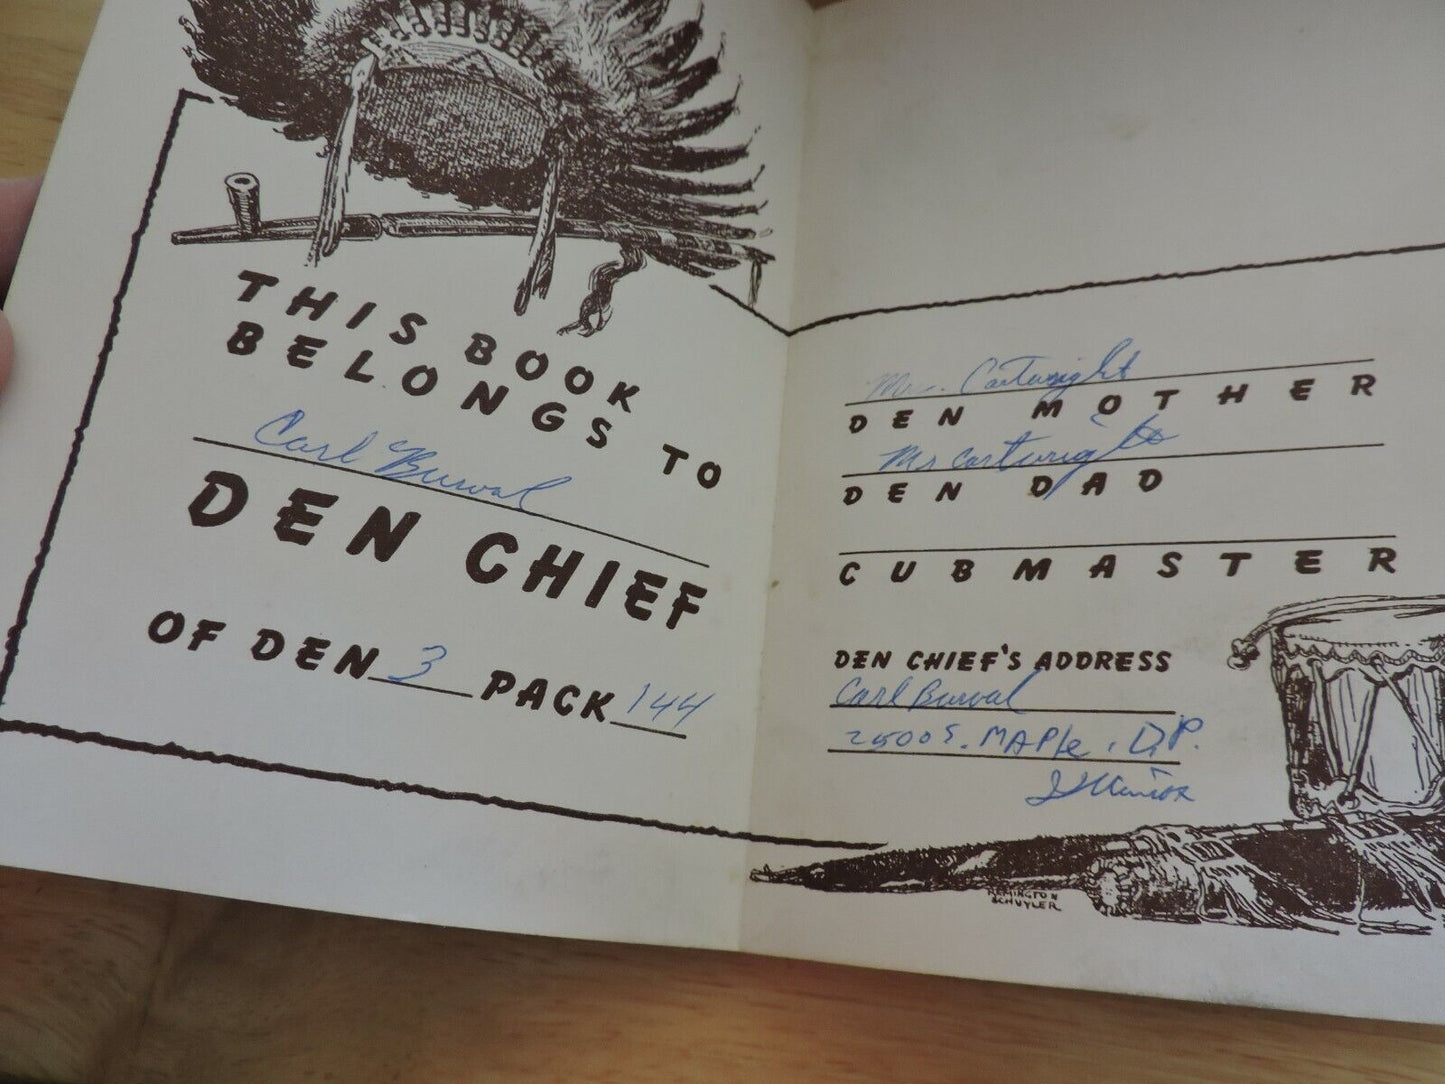 THIS BOOK
BELONGS TO
Carl Burval
DEN CHIEF
OF DEN 3 PACK 144
Mrs. Cartwright
DEN MOTHER
Mr Cartwright
DEN DAD
CUBMASTER
DEN CHIEF'S ADDRESS
Carl Burval
2500 S. MAPle, D.P.
Illinois
REMINGTON
SCHUYLER